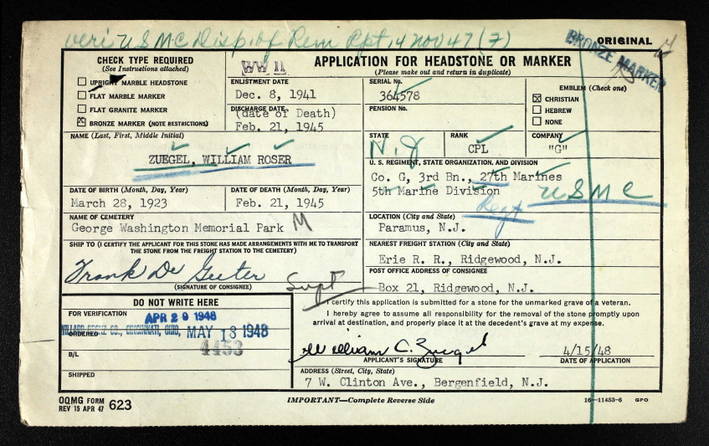 veri USMC Disp. of Rem Rpt, 14 Nov 47 (7)
ORIGINAL
BRONZE MARKER
CHECK TYPE REQUIRED
(See Instructions attached)
UPRIGHT MARBLE HEADSTONE
FLAT MARBLE MARKER
FLAT GRANITE MARKER
BRONZE MARKER (NOTE RESTRICTIONS)
WW II
ENLISTMENT DATE
Dec. 8, 1941
DISCHARGE DATE
(date of Death)
Feb. 21, 1945
APPLICATION FOR HEADSTONE OR MARKER
(Please make out and return in duplicate)
SERIAL No.
364578
PENSION No.
EMBLEM (Check one)
CHRISTIAN
HEBREW
NONE
NAME (Last, First, Middle Initial)
ZUEGEL, WILLIAM ROSER
STATE
N.J
RANK
CPL
COMPANY
"G"
U. S. REGIMENT, STATE ORGANIZATION, AND DIVISION
Co. G, 3rd Bn., 27th Marines
5th Marine Division
Regt
USMC
DATE OF BIRTH (Month, Day, Year)
March 28, 1923
DATE OF DEATH (Month, Day, Year)
Feb. 21, 1945
NAME OF CEMETERY
George Washington Memorial Park
M
LOCATION (City and State)
Paramus, N.J.
SHIP TO (I CERTIFY THE APPLICANT FOR THIS STONE HAS MADE ARRANGEMENTS WITH ME TO TRANSPORT
THE STONE FROM THE FREIGHT STATION TO THE CEMETERY)
Frank De Geeter
Supt
(SIGNATURE OF CONSIGNEE)
NEAREST FREIGHT STATION (City and State)
Erie R. R., Ridgewood, N.J.
POST OFFICE ADDRESS OF CONSIGNEE
Box 21, Ridgewood, N.J.
DO NOT WRITE HERE
FOR VERIFICATION
APR 29 1948
CINCINNATI, OHIO,
MAY 13 1948
4453
B/L
SHIPPED
I certify this application is submitted for a stone for the unmarked grave of a veteran.
I hereby agree to assume all responsibility for the removal of the stone promptly upon
arrival at destination, and properly place it at the decedent's grave at my expense.
William C. Zuegel
4/15/48
APPLICANT'S SIGNATURE
DATE OF APPLICATION
ADDRESS (Street, City, State)
7 W. Clinton Ave., Bergenfield, N.J.
OQMG FORM
REV 15 APR 47
623
IMPORTANT—Complete Reverse Side
16—11453-6 GPO